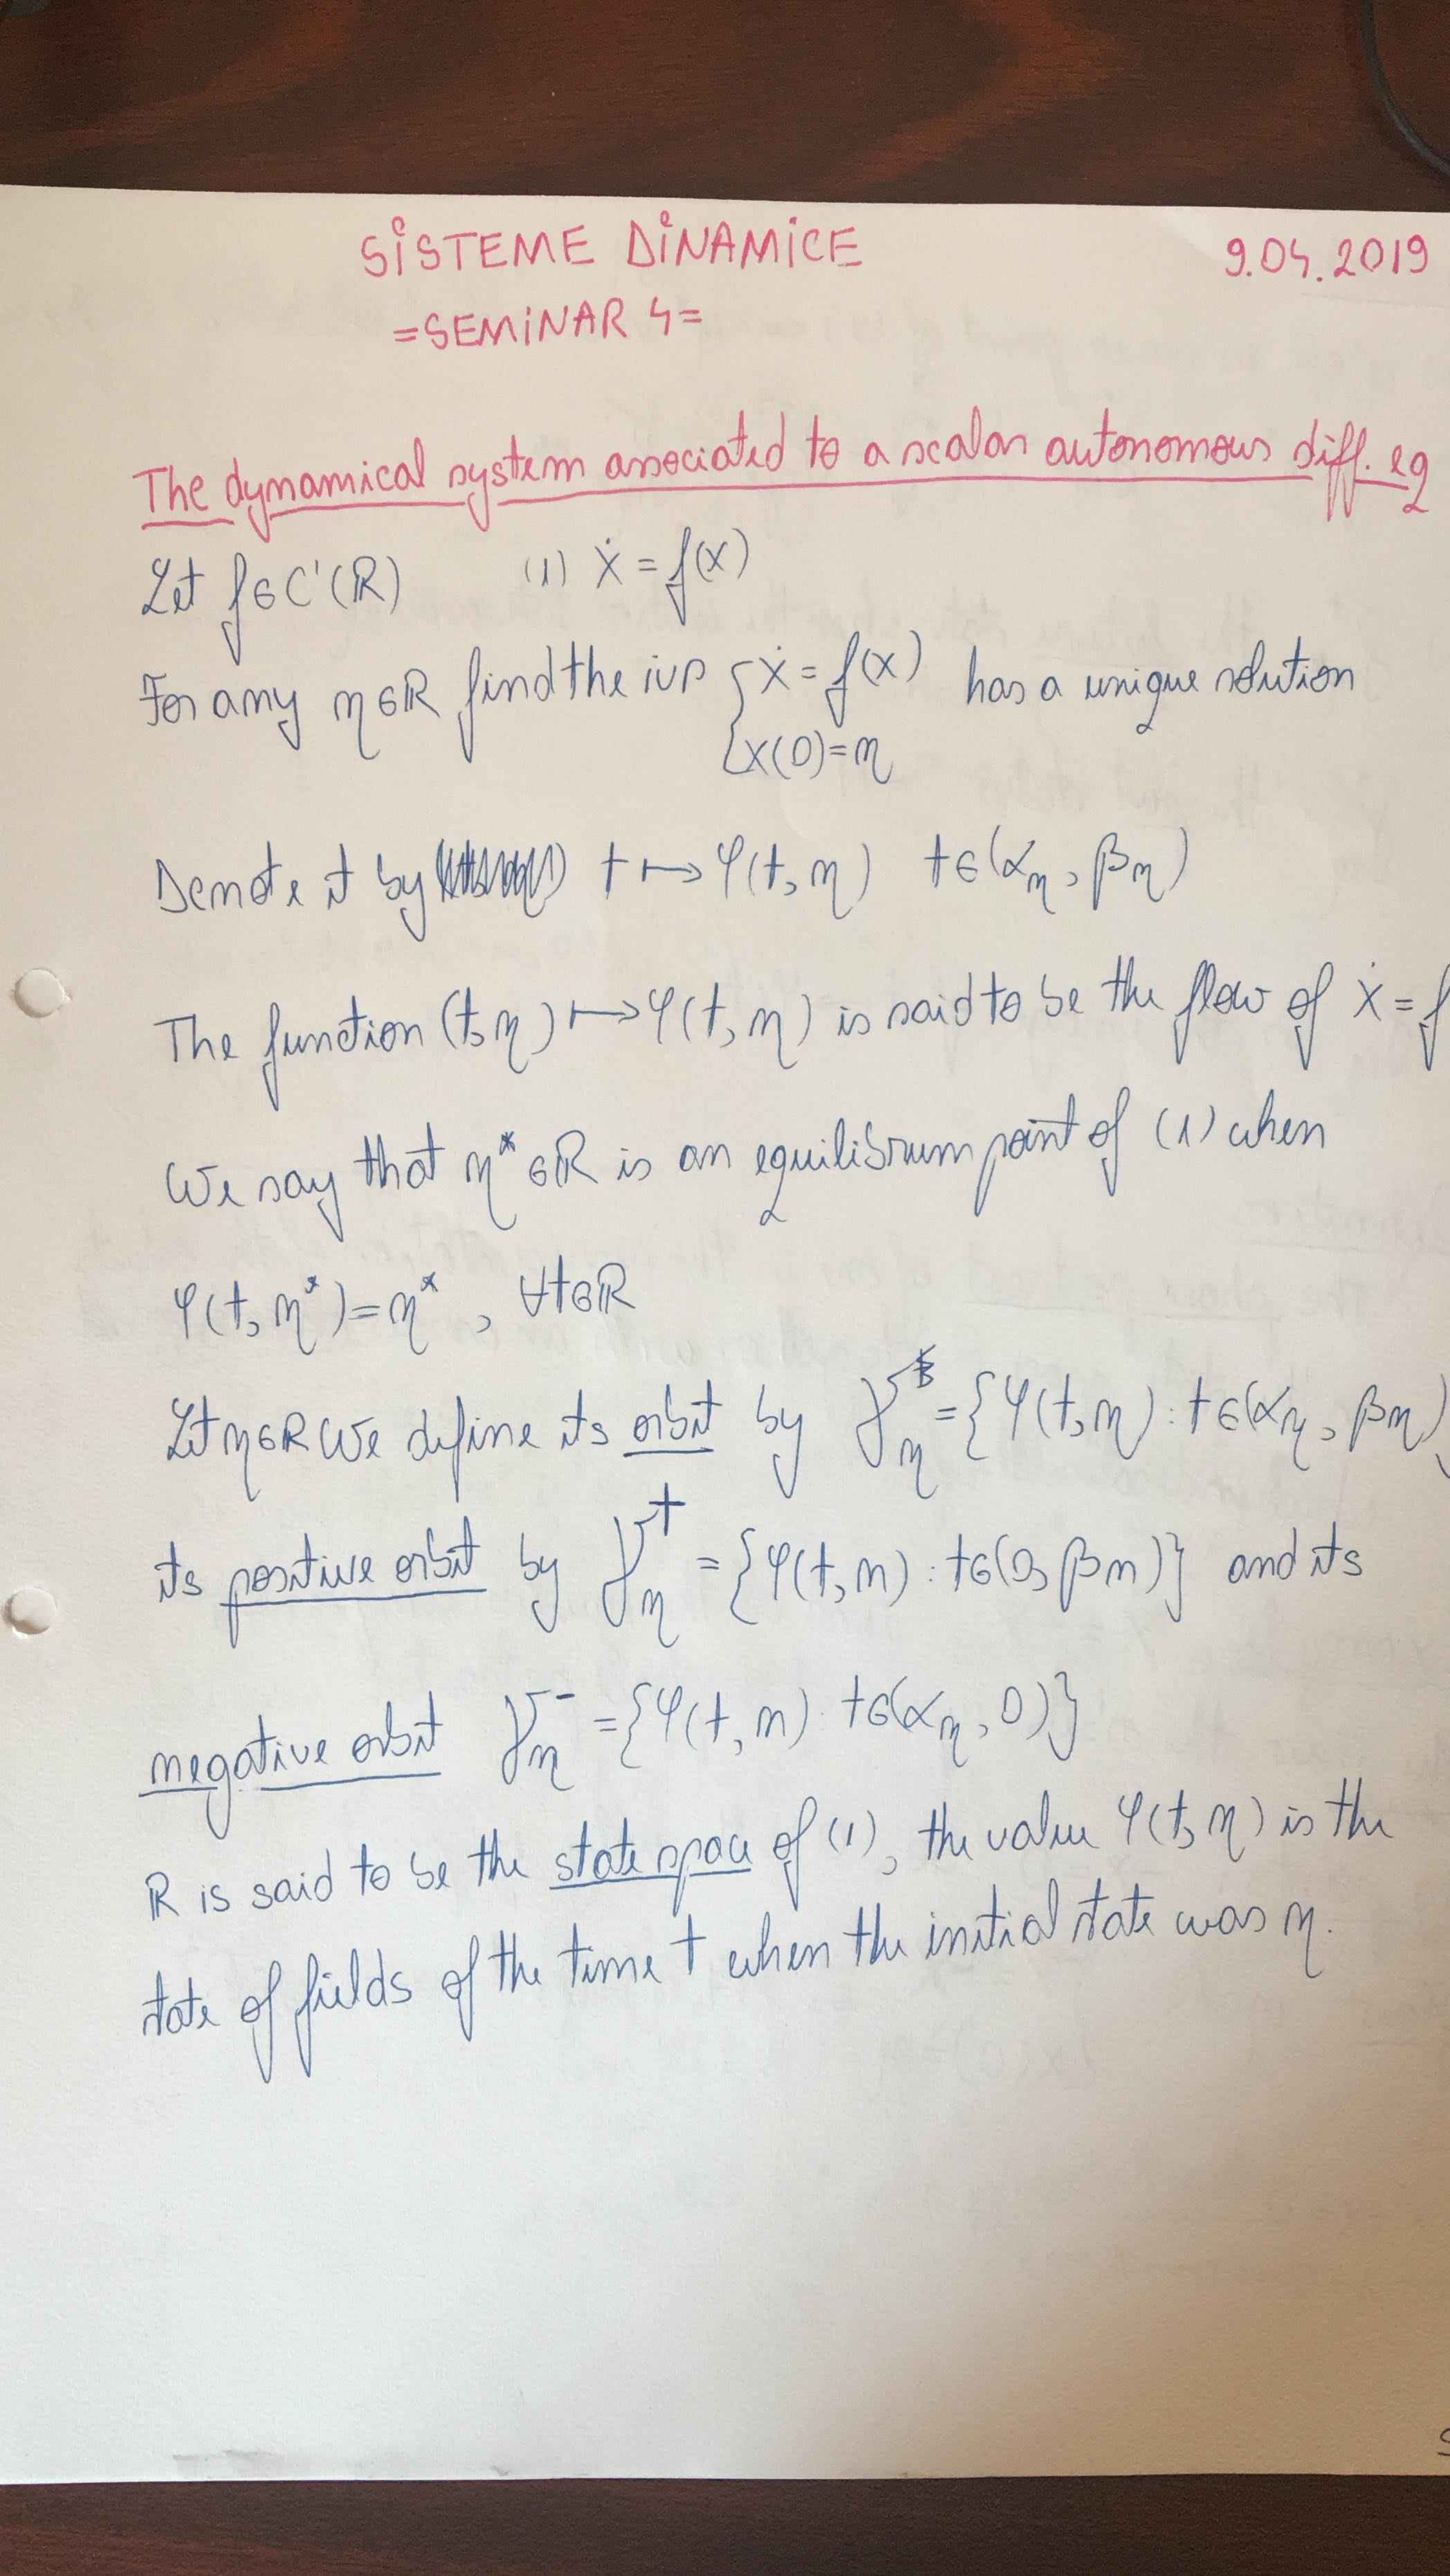 SiSTEME DiNAMiCE 9.04.2019
=SEMiNAR 4=
The dynamical system associated to a scalar autonomous diff. eq
Let f∈C¹(ℝ) (1) ẋ = f(x)
For any η∈ℝ find the ivp { ẋ = f(x) has a unique solution
x(0)=η
Denote it by t ↦ φ(t, η) t∈(αη, βη)
The function (t, η) ↦ φ(t, η) is said to be the flow of ẋ = f
We say that η*∈ℝ is an equilibrium point of (1) when
φ(t, η*)=η*, ∀t∈ℝ
Let η∈ℝ We define its orbit by γη = {φ(t, η) : t∈(αη, βη)
its positive orbit by γη⁺ = {φ(t, η) : t∈(0, βη)} and its
negative orbit γη⁻ = {φ(t, η) : t∈(αη, 0)}
ℝ is said to be the state space of (1), the value φ(t, η) is the
state of fields of the time t when the initial state was η.